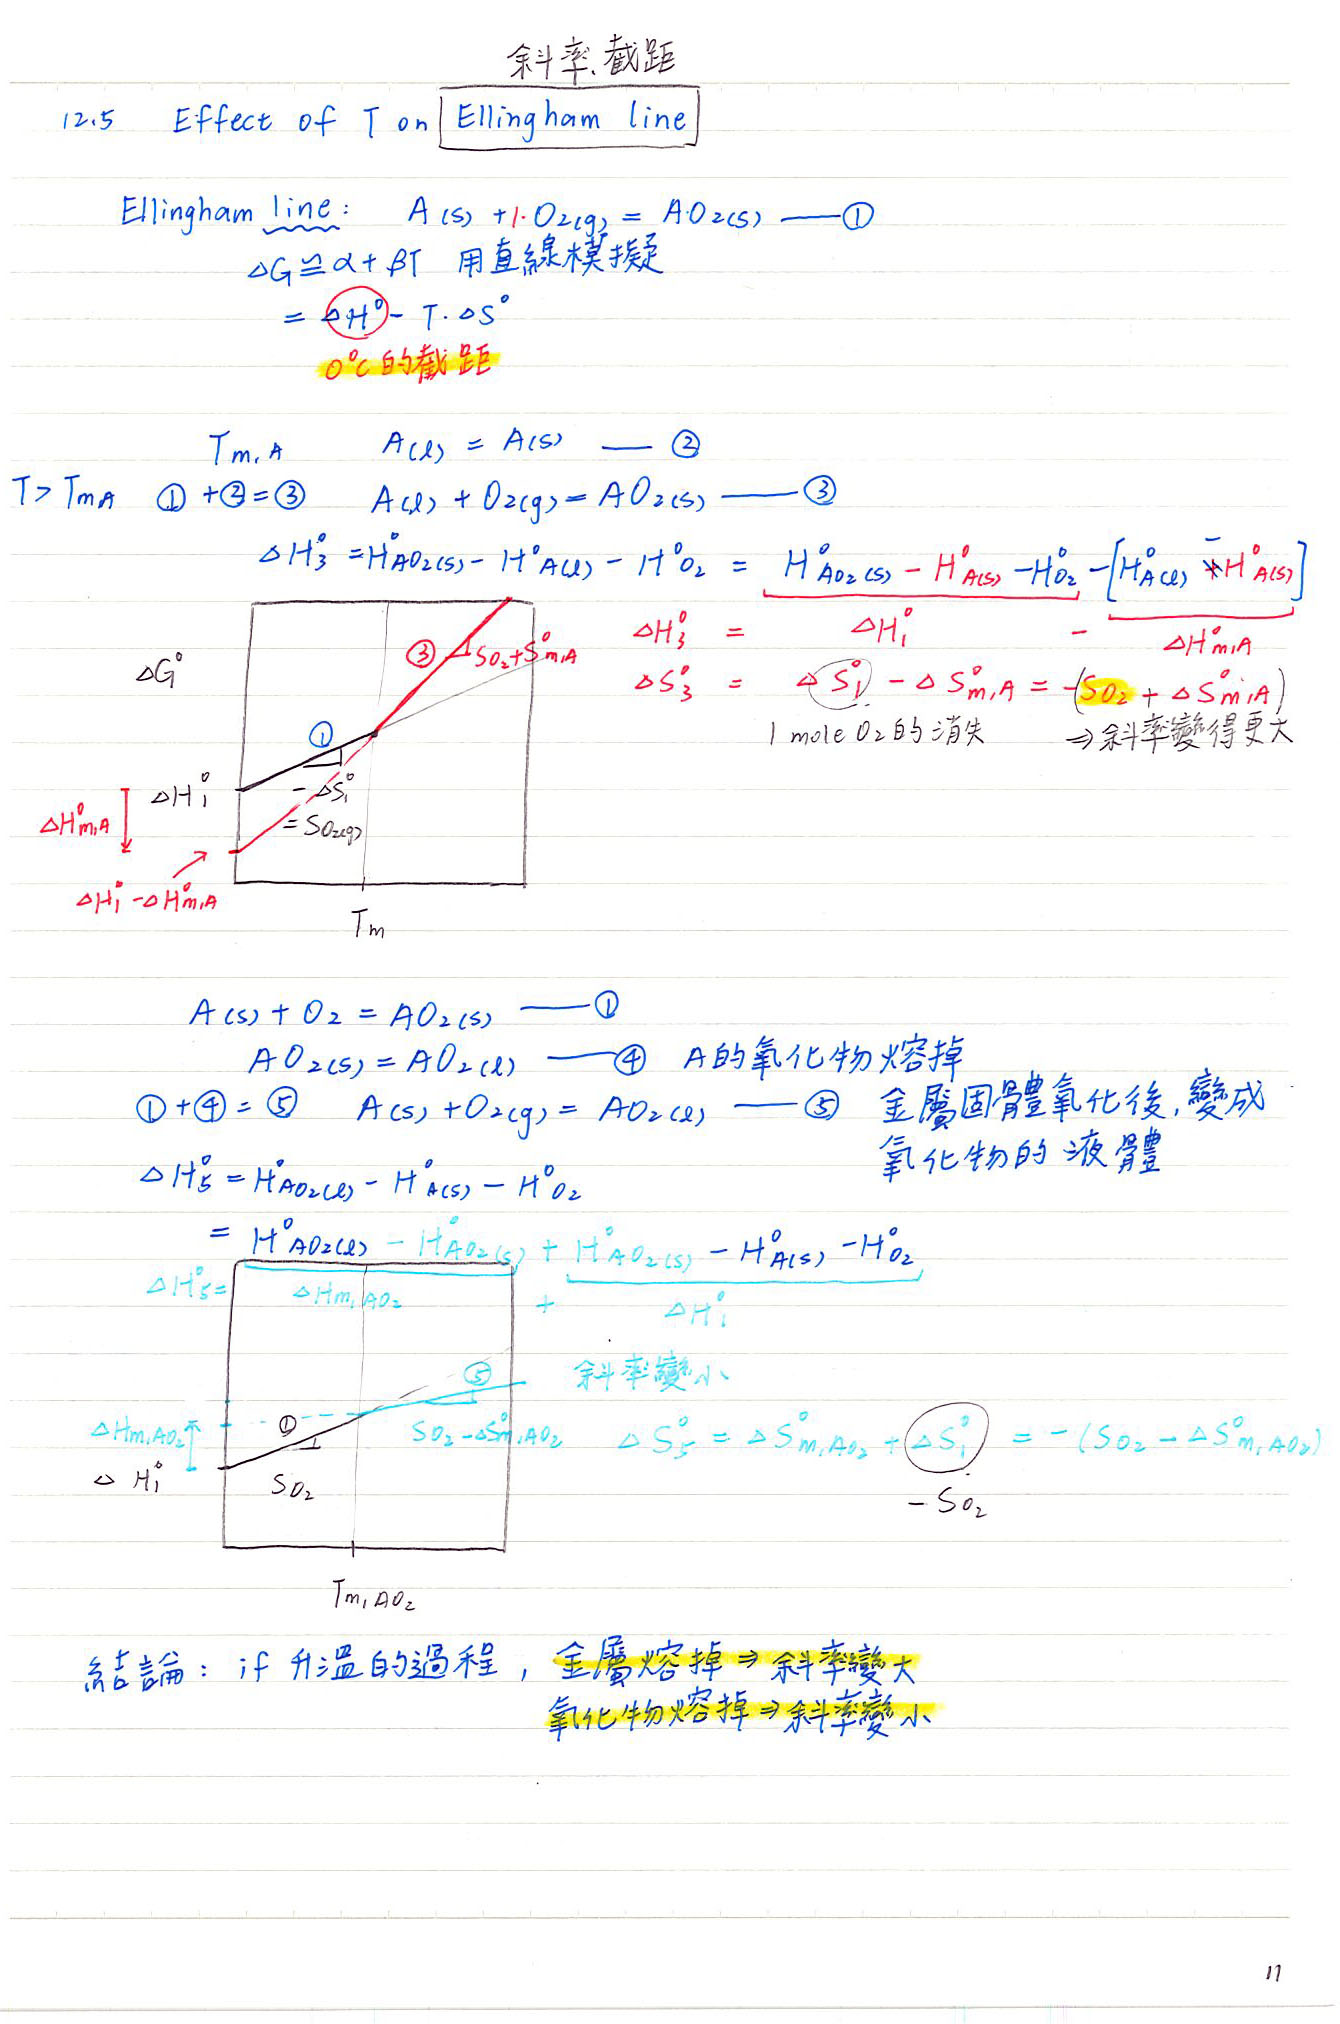 斜率、截距
12.5 Effect of T on Ellingham line
Ellingham line: A(s) + 1·O2(g) = AO2(s) — ①
ΔG ≅ α + βT 用直線模擬
= ΔH° - T·ΔS°
0°C的截距
Tm,A A(l) = A(s) — ②
T > TmA ①+②=③ A(l) + O2(g) = AO2(s) — ③
ΔH°3 = H°AO2(s) - H°A(l) - H°O2 = H°AO2(s) - H°A(s) - H°O2 - [H°A(l) - H°A(s)]
ΔH°3 = ΔH°1 - ΔH°m,A
ΔS°3 = ΔS°1 - ΔS°m,A = -(SO2 + ΔS°m,A)
1 mole O2的消失 ⇒斜率變得更大
ΔG°
③ SO2+S°m,A
①
ΔH°1
-ΔS°1
= SO2(g)
ΔH°m,A
ΔH°1 - ΔH°m,A
Tm
A(s) + O2 = AO2(s) — ①
AO2(s) = AO2(l) — ④ A的氧化物熔掉
①+④=⑤ A(s) + O2(g) = AO2(l) — ⑤ 金屬固體氧化後,變成
氧化物的液體
ΔH°5 = H°AO2(l) - H°A(s) - H°O2
= H°AO2(l) - H°AO2(s) + H°AO2(s) - H°A(s) - H°O2
ΔH°5 = ΔHm,AO2 + ΔH°1
⑤ 斜率變小
ΔHm,AO2 ① SO2-ΔS°m,AO2 ΔS°5 = ΔS°m,AO2 + ΔS°1 = -(SO2 - ΔS°m,AO2)
ΔH°1 SO2 -SO2
Tm,AO2
結論: if 升溫的過程, 金屬熔掉⇒斜率變大
氧化物熔掉⇒斜率變小
17